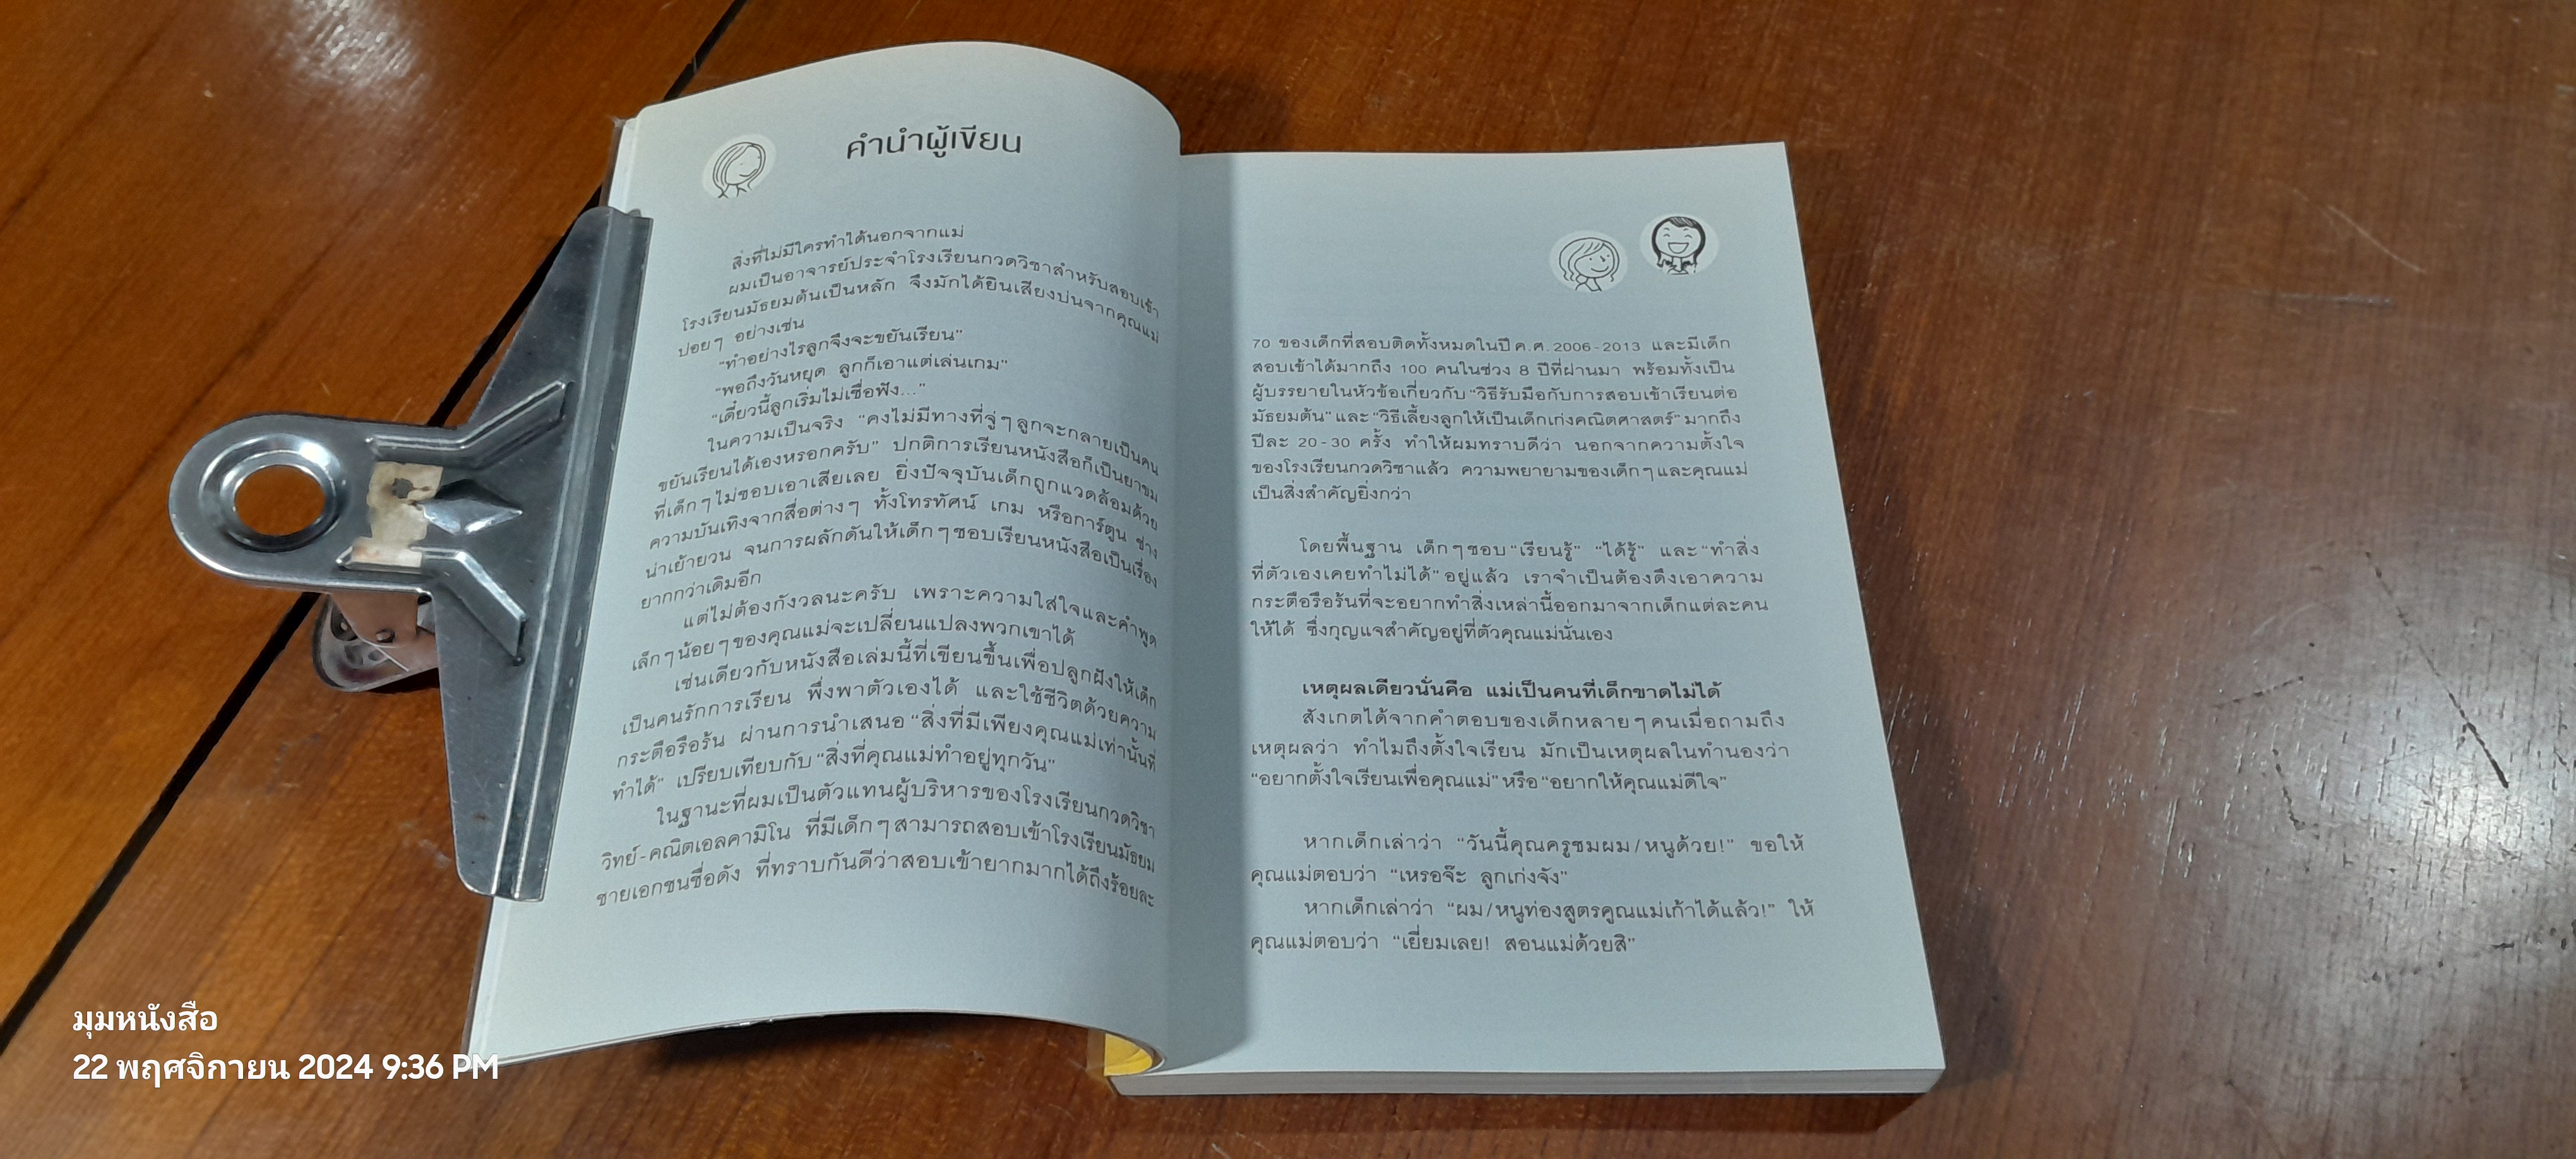 คำนำผู้เขียน
สิ่งที่ไม่มีใครทำได้นอกจากแม่
ผมเป็นอาจารย์ประจำโรงเรียนกวดวิชาสำหรับสอบเข้า
โรงเรียนมัธยมต้นเป็นหลัก จึงมักได้ยินเสียงบ่นจากคุณแม่
บ่อยๆ อย่างเช่น
"ทำอย่างไรลูกจึงจะขยันเรียน"
"พอถึงวันหยุด ลูกก็เอาแต่เล่นเกม"
"เดี๋ยวนี้ลูกเริ่มไม่เชื่อฟัง..."
ในความเป็นจริง "คงไม่มีทางที่จู่ๆ ลูกจะกลายเป็นคน
ขยันเรียนได้เองหรอกครับ" ปกติการเรียนหนังสือก็เป็นยาขม
ที่เด็กๆ ไม่ชอบเอาเสียเลย ยิ่งปัจจุบันเด็กถูกแวดล้อมด้วย
ความบันเทิงจากสื่อต่างๆ ทั้งโทรทัศน์ เกม หรือการ์ตูน ช่าง
น่าเย้ายวน จนการผลักดันให้เด็กๆ ชอบเรียนหนังสือเป็นเรื่อง
ยากกว่าเดิมอีก
แต่ไม่ต้องกังวลนะครับ เพราะความใส่ใจและคำพูด
เล็กๆ น้อยๆ ของคุณแม่จะเปลี่ยนแปลงพวกเขาได้
เช่นเดียวกับหนังสือเล่มนี้ที่เขียนขึ้นเพื่อปลูกฝังให้เด็ก
เป็นคนรักการเรียน พึ่งพาตัวเองได้ และใช้ชีวิตด้วยความ
กระตือรือร้น ผ่านการนำเสนอ "สิ่งที่มีเพียงคุณแม่เท่านั้นที่
ทำได้" เปรียบเทียบกับ "สิ่งที่คุณแม่ทำอยู่ทุกวัน"
ในฐานะที่ผมเป็นตัวแทนผู้บริหารของโรงเรียนกวดวิชา
วิทย์-คณิตเอลคามิโน ที่มีเด็กๆ สามารถสอบเข้าโรงเรียนมัธยม
ชายเอกชนชื่อดัง ที่ทราบกันดีว่าสอบเข้ายากมากได้ถึงร้อยละ
70 ของเด็กที่สอบติดทั้งหมดในปี ค.ศ. 2006-2013 และมีเด็ก
สอบเข้าได้มากถึง 100 คนในช่วง 8 ปีที่ผ่านมา พร้อมทั้งเป็น
ผู้บรรยายในหัวข้อเกี่ยวกับ "วิธีรับมือกับการสอบเข้าเรียนต่อ
มัธยมต้น" และ "วิธีเลี้ยงลูกให้เป็นเด็กเก่งคณิตศาสตร์" มากถึง
ปีละ 20-30 ครั้ง ทำให้ผมทราบดีว่า นอกจากความตั้งใจ
ของโรงเรียนกวดวิชาแล้ว ความพยายามของเด็กๆ และคุณแม่
เป็นสิ่งสำคัญยิ่งกว่า
โดยพื้นฐาน เด็กๆ ชอบ "เรียนรู้" "ได้รู้" และ "ทำสิ่ง
ที่ตัวเองเคยทำไม่ได้" อยู่แล้ว เราจำเป็นต้องดึงเอาความ
กระตือรือร้นที่จะอยากทำสิ่งเหล่านี้ออกมาจากเด็กแต่ละคน
ให้ได้ ซึ่งกุญแจสำคัญอยู่ที่ตัวคุณแม่นั่นเอง
เหตุผลเดียวนั่นคือ แม่เป็นคนที่เด็กขาดไม่ได้
สังเกตได้จากคำตอบของเด็กหลายๆ คนเมื่อถามถึง
เหตุผลว่า ทำไมถึงตั้งใจเรียน มักเป็นเหตุผลในทำนองว่า
"อยากตั้งใจเรียนเพื่อคุณแม่" หรือ "อยากให้คุณแม่ดีใจ"
หากเด็กเล่าว่า "วันนี้คุณครูชมผม/หนูด้วย!" ขอให้
คุณแม่ตอบว่า "เหรอจ๊ะ ลูกเก่งจัง"
หากเด็กเล่าว่า "ผม/หนูท่องสูตรคูณแม่เก้าได้แล้ว!" ให้
คุณแม่ตอบว่า "เยี่ยมเลย! สอนแม่ด้วยสิ"
มุมหนังสือ
22 พฤศจิกายน 2024 9:36 PM